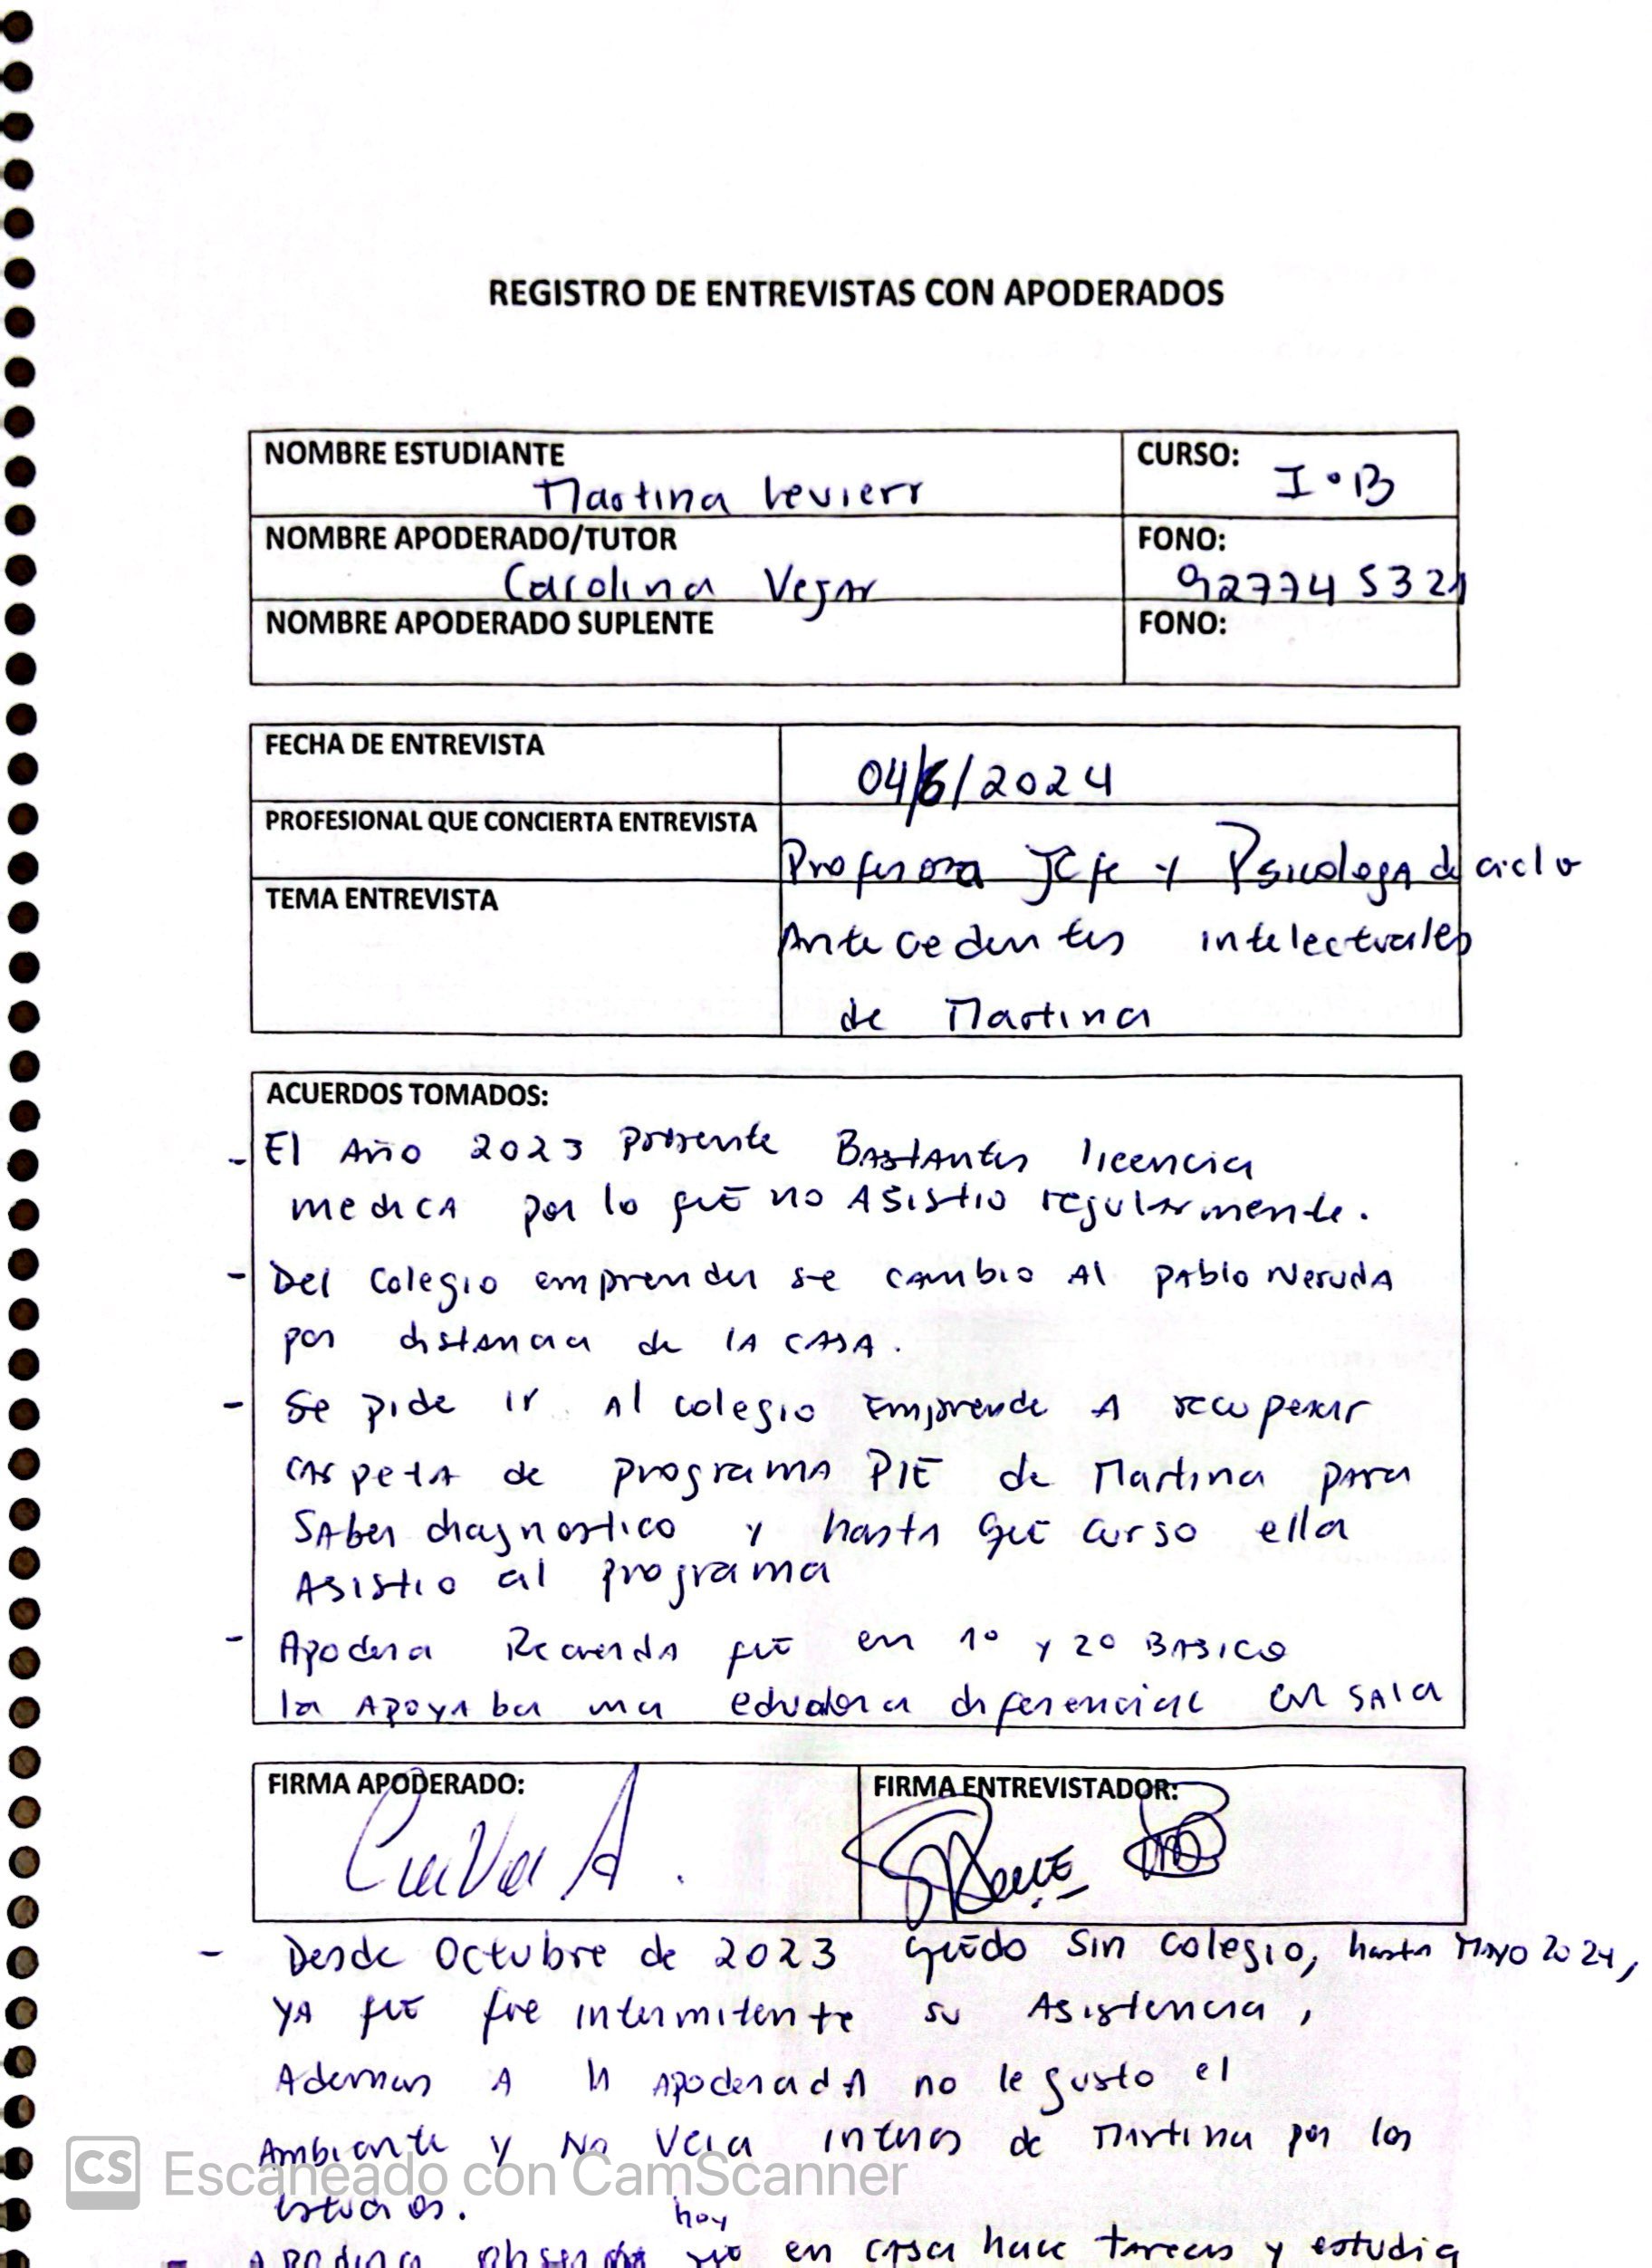 REGISTRO DE ENTREVISTAS CON APODERADOS
NOMBRE ESTUDIANTE
Martina Levierr
CURSO:
I°B
NOMBRE APODERADO/TUTOR
Carolina Vegar
FONO:
927745321
NOMBRE APODERADO SUPLENTE
FONO:
FECHA DE ENTREVISTA
04/6/2024
PROFESIONAL QUE CONCIERTA ENTREVISTA
Profesora Jefe y Psicologa de ciclo
TEMA ENTREVISTA
Antecedentes intelectuales
de Martina
ACUERDOS TOMADOS:
- El Año 2023 presente Bastantes licencia
medica por lo que no Asistio regularmente.
- Del Colegio emprender se cambio Al pablo Neruda
por distancia de la casa.
- Se pide ir Al colegio Emprende A recuperar
carpeta de programa PIE de Martina para
Saber diagnostico y hasta que curso ella
Asistio al programa
- Apodera Recuerda que en 1° y 2° Basico
la Apoyaba una diferencial en sala
FIRMA APODERADO:
FIRMA ENTREVISTADOR:
- Desde Octubre de 2023 quedo Sin Colegio, hasta Mayo 2024,
ya que fue intermitente su Asistencia,
Ademas A la Apoderada no le gusto el
Ambiente y No Veia interes de Martina por los
estudios.
hoy
- en casa hace tareas y estudia
CS Escaneado con CamScanner